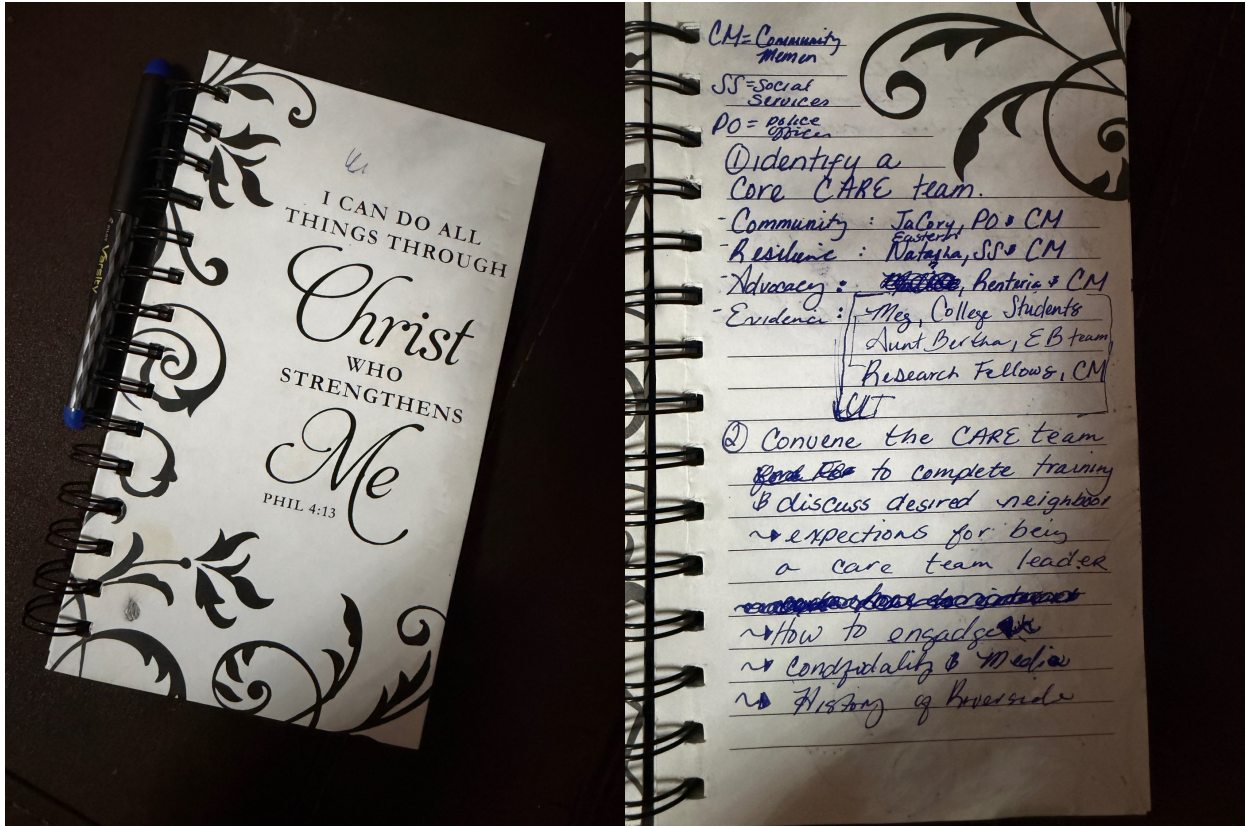 I CAN DO ALL
THINGS THROUGH
Christ
WHO
STRENGTHENS
Me
PHIL 4:13
Varsity
CM = Community
Memer
SS = Social
Services
PO = police
officer
① identify a
core CARE team.
- Community : JaCory, PO & CM
Eastern
- Resilience : Natasha, SS & CM
- Advocacy : , Renturia & CM
- Evidence : Meg, College Students
Aunt Bertha, EB team
Research Fellows, CM
UT
② Convene the CARE team
to complete training
& discuss desired neighbor
↝ expections for being
a care team leader
↝ How to engadge
↝ Condfidality & Media
↝ History of Riverside